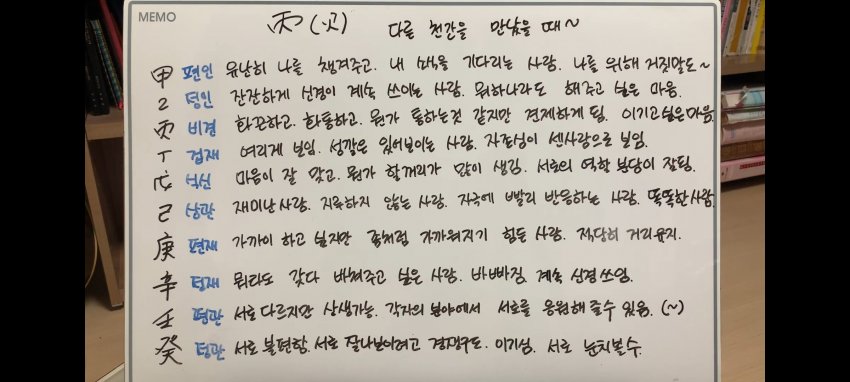 MEMO
丙 (시) 다른 천간을 만났을 때~
甲 편인 유난히 나를 챙겨주고. 내 소식을 기다리는 사람. 나를 위해 거짓말도~
乙 정인 잔잔하게 신경이 계속 쓰이는 사람. 뭐하나라도 해주고 싶은 마음.
丙 비견 화끈하고. 화통하고. 뭔가 통하는것 같지만 견제하게 됨. 이기고싶은마음
丁 겁재 여리게 보임. 성깔은 있어보이는 사람. 자존심이 센사람으로 보임.
戊 식신 마음이 잘 맞고. 뭔가 할꺼리가 많이 생김. 서로의 역할 분담이 잘됨.
己 상관 재미난 사람. 지루하지 않는 사람. 자극에 빨리 반응하는 사람. 똑똑한사람.
庚 편재 가까이 하고 싶지만 좀처럼 가까워지기 힘든 사람. 적당히 거리유지.
辛 정재 뭐라도 갖다 바쳐주고 싶은 사람. 바빠짐. 계속 신경쓰임.
壬 편관 서로 다르지만 상생가능. 각자의 분야에서 서로를 응원해 줄수 있음. (~)
癸 정관 서로 불편함. 서로 잘나보이려고 경쟁구도. 이기심. 서로 눈치볼수.